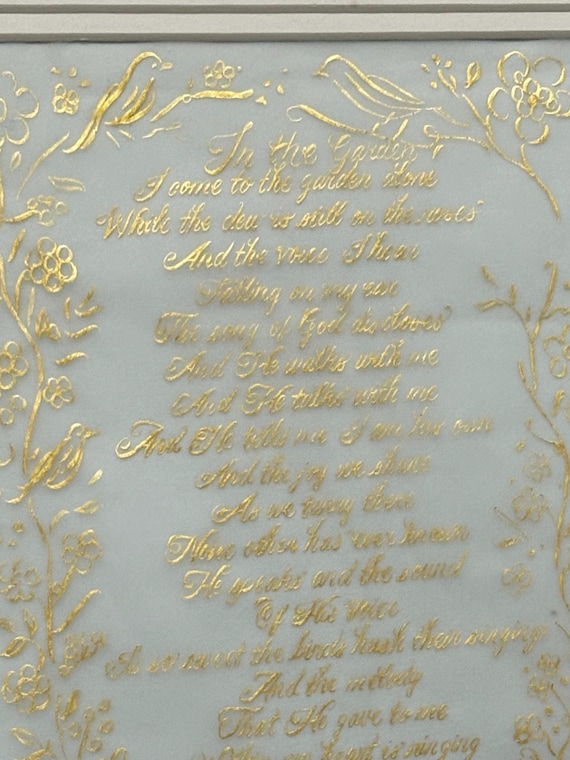 In the Garden
I come to the garden alone
While the dew is still on the roses
And the voice I hear
Falling on my ear
The song of God discloses
And He walks with me
And He talks with me
And He tells me I am his own
And the joy we share
As we tarry there
None other has ever known
He speaks and the sound
Of His voice
Is so sweet the birds hush their singing
And the melody
That He gave to me
my heart is ringing